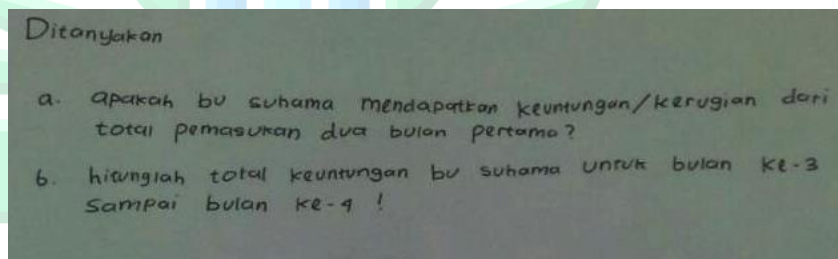 Ditanyakan
a. apakah bu suhama mendapatkan keuntungan/kerugian dari
total pemasukan dua bulan pertama?
b. hitunglah total keuntungan bu suhama untuk bulan ke-3
sampai bulan ke-4 !